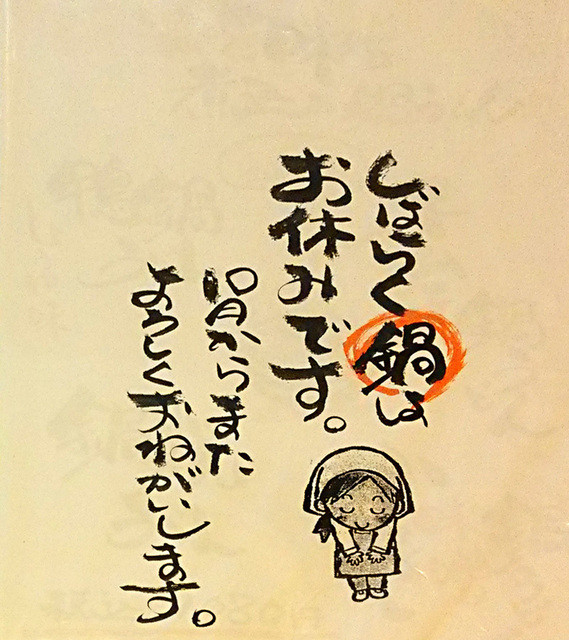 しばらく鍋は
お休みです。
10月からまた
よろしくおねがいします。